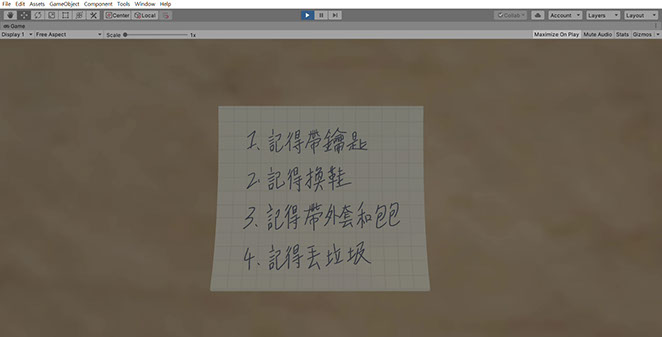 File Edit Assets GameObject Component Tools Window Help
Center Local Collab Account Layers Layout
Game
Display 1 Free Aspect Scale 1x Maximize On Play Mute Audio Stats Gizmos
1. 記得帶鑰匙
2. 記得換鞋
3. 記得帶外套和包包
4. 記得丟垃圾